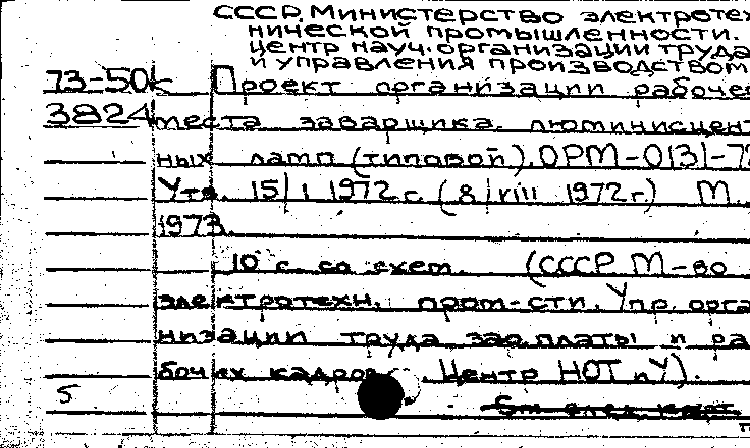 СССР. Министерство электроте
нической промышленности.
Центр науч. организации труда
и управления производством
73-50к Проект организации рабоче
3824 места заварщика люминисцент
ных ламп (типовой). ОРМ-0131-7
Утв. 15/I 1972 г. (8/VIII 1972 г.) М.
1973.
10 с. со схем. (СССР. М-во
электротехн. пром-сти. Упр. орга
низации труда, зар. платы и ра
бочих кадров. Центр НОТ и У).
5